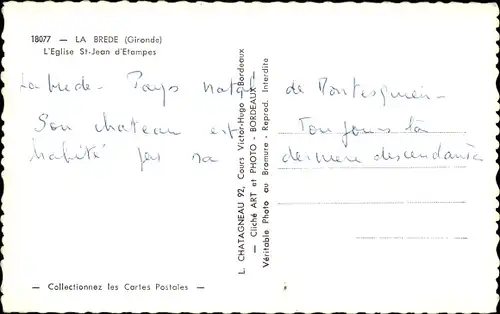 18077 — LA BREDE (Gironde)
L'Eglise St-Jean d'Etampes
La brede - Pays natal de Montesquieu -
Son chateau est Toujours là
habité par sa dernière descendante
L. CHATAGNEAU 92, Cours Victor-Hugo - Bordeaux
— Cliché ART et PHOTO - BORDEAUX —
Véritable Photo au Bromure - Reprod. Interdite
— Collectionnez les Cartes Postales —